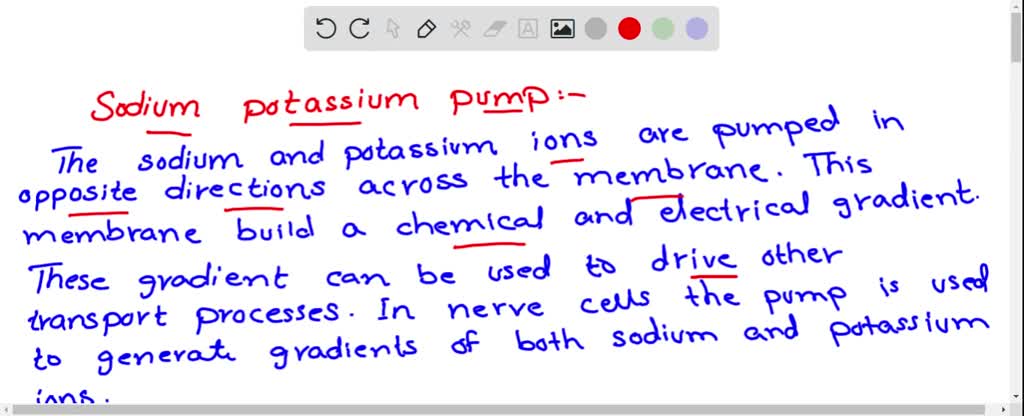 Sodium potassium pump:-
The sodium and potassium ions are pumped in
opposite directions across the membrane. This
membrane build a chemical and electrical gradient.
These gradient can be used to drive other
transport processes. In nerve cells the pump is used
to generate gradients of both sodium and potassium
ions.